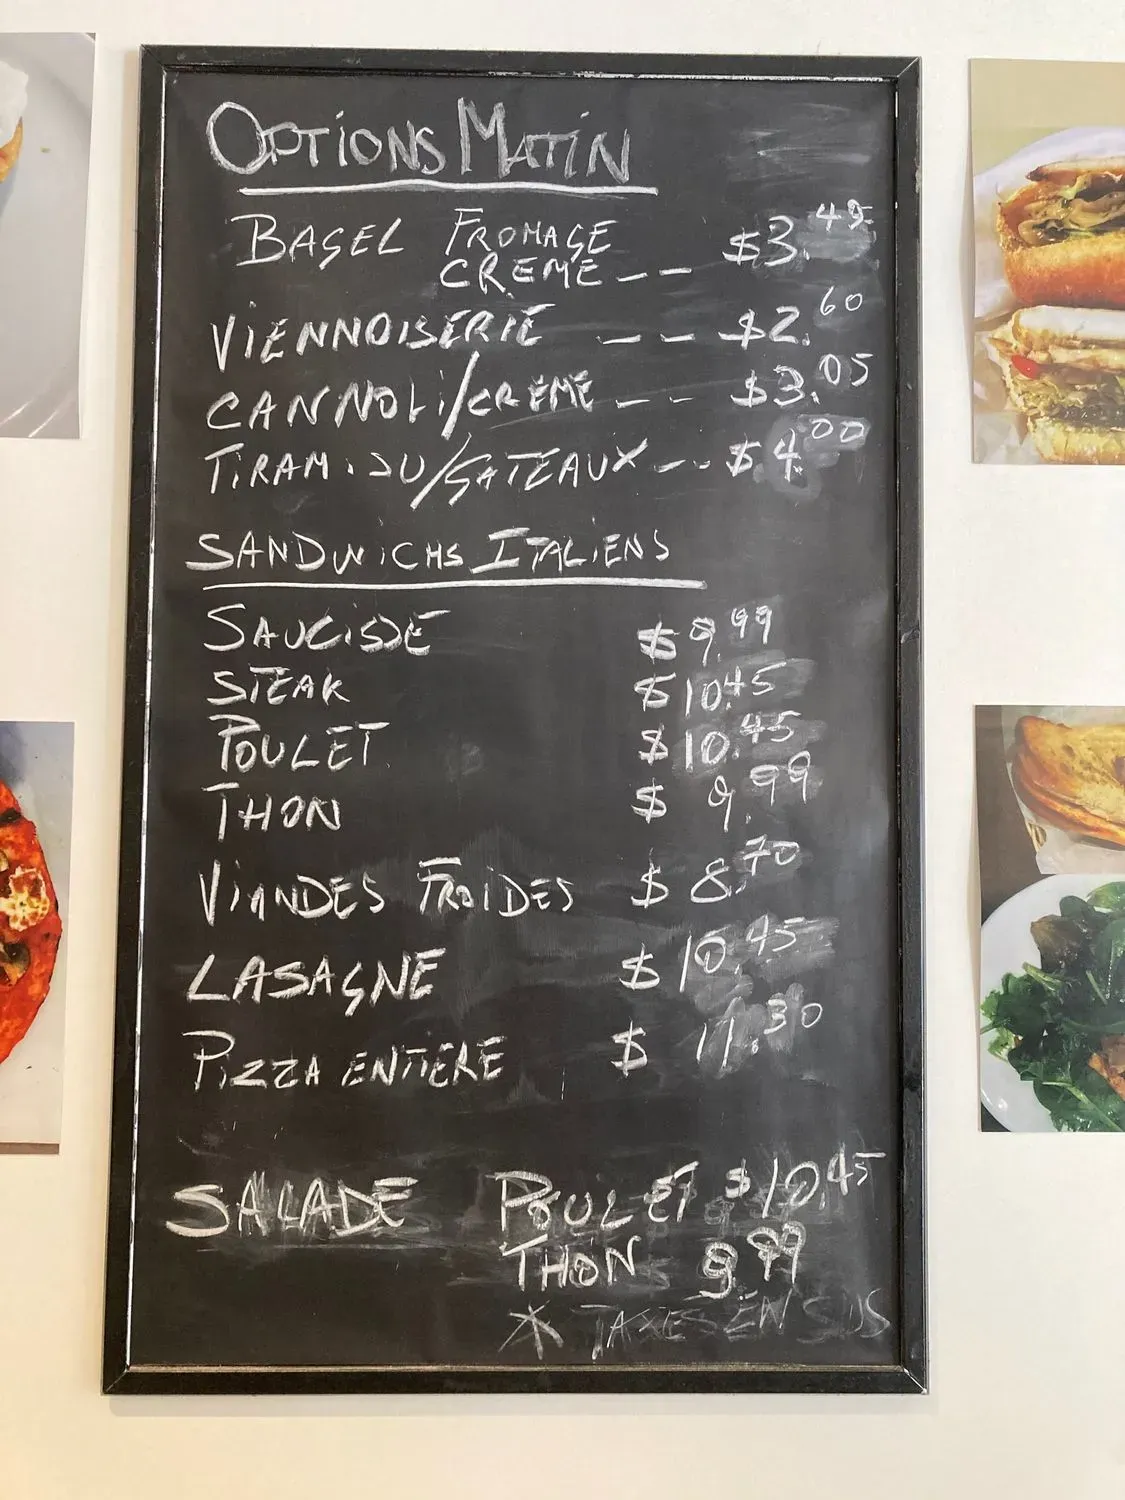 OPTIONS MATIN
BAGEL FROMAGE
CREME -- $3.45
VIENNOISERIE -- $2.60
CANNOLI/CREME -- $3.05
TIRAMISU/GATEAUX -- $4.00
SANDWICHS ITALIENS
SAUCISSE $9.99
STEAK $10.45
POULET $10.45
THON $9.99
VIANDES FROIDES $8.70
LASAGNE $10.45
PIZZA ENTIERE $11.30
SALADE POULET $10.45
THON 9.99
* TAXES EN SUS